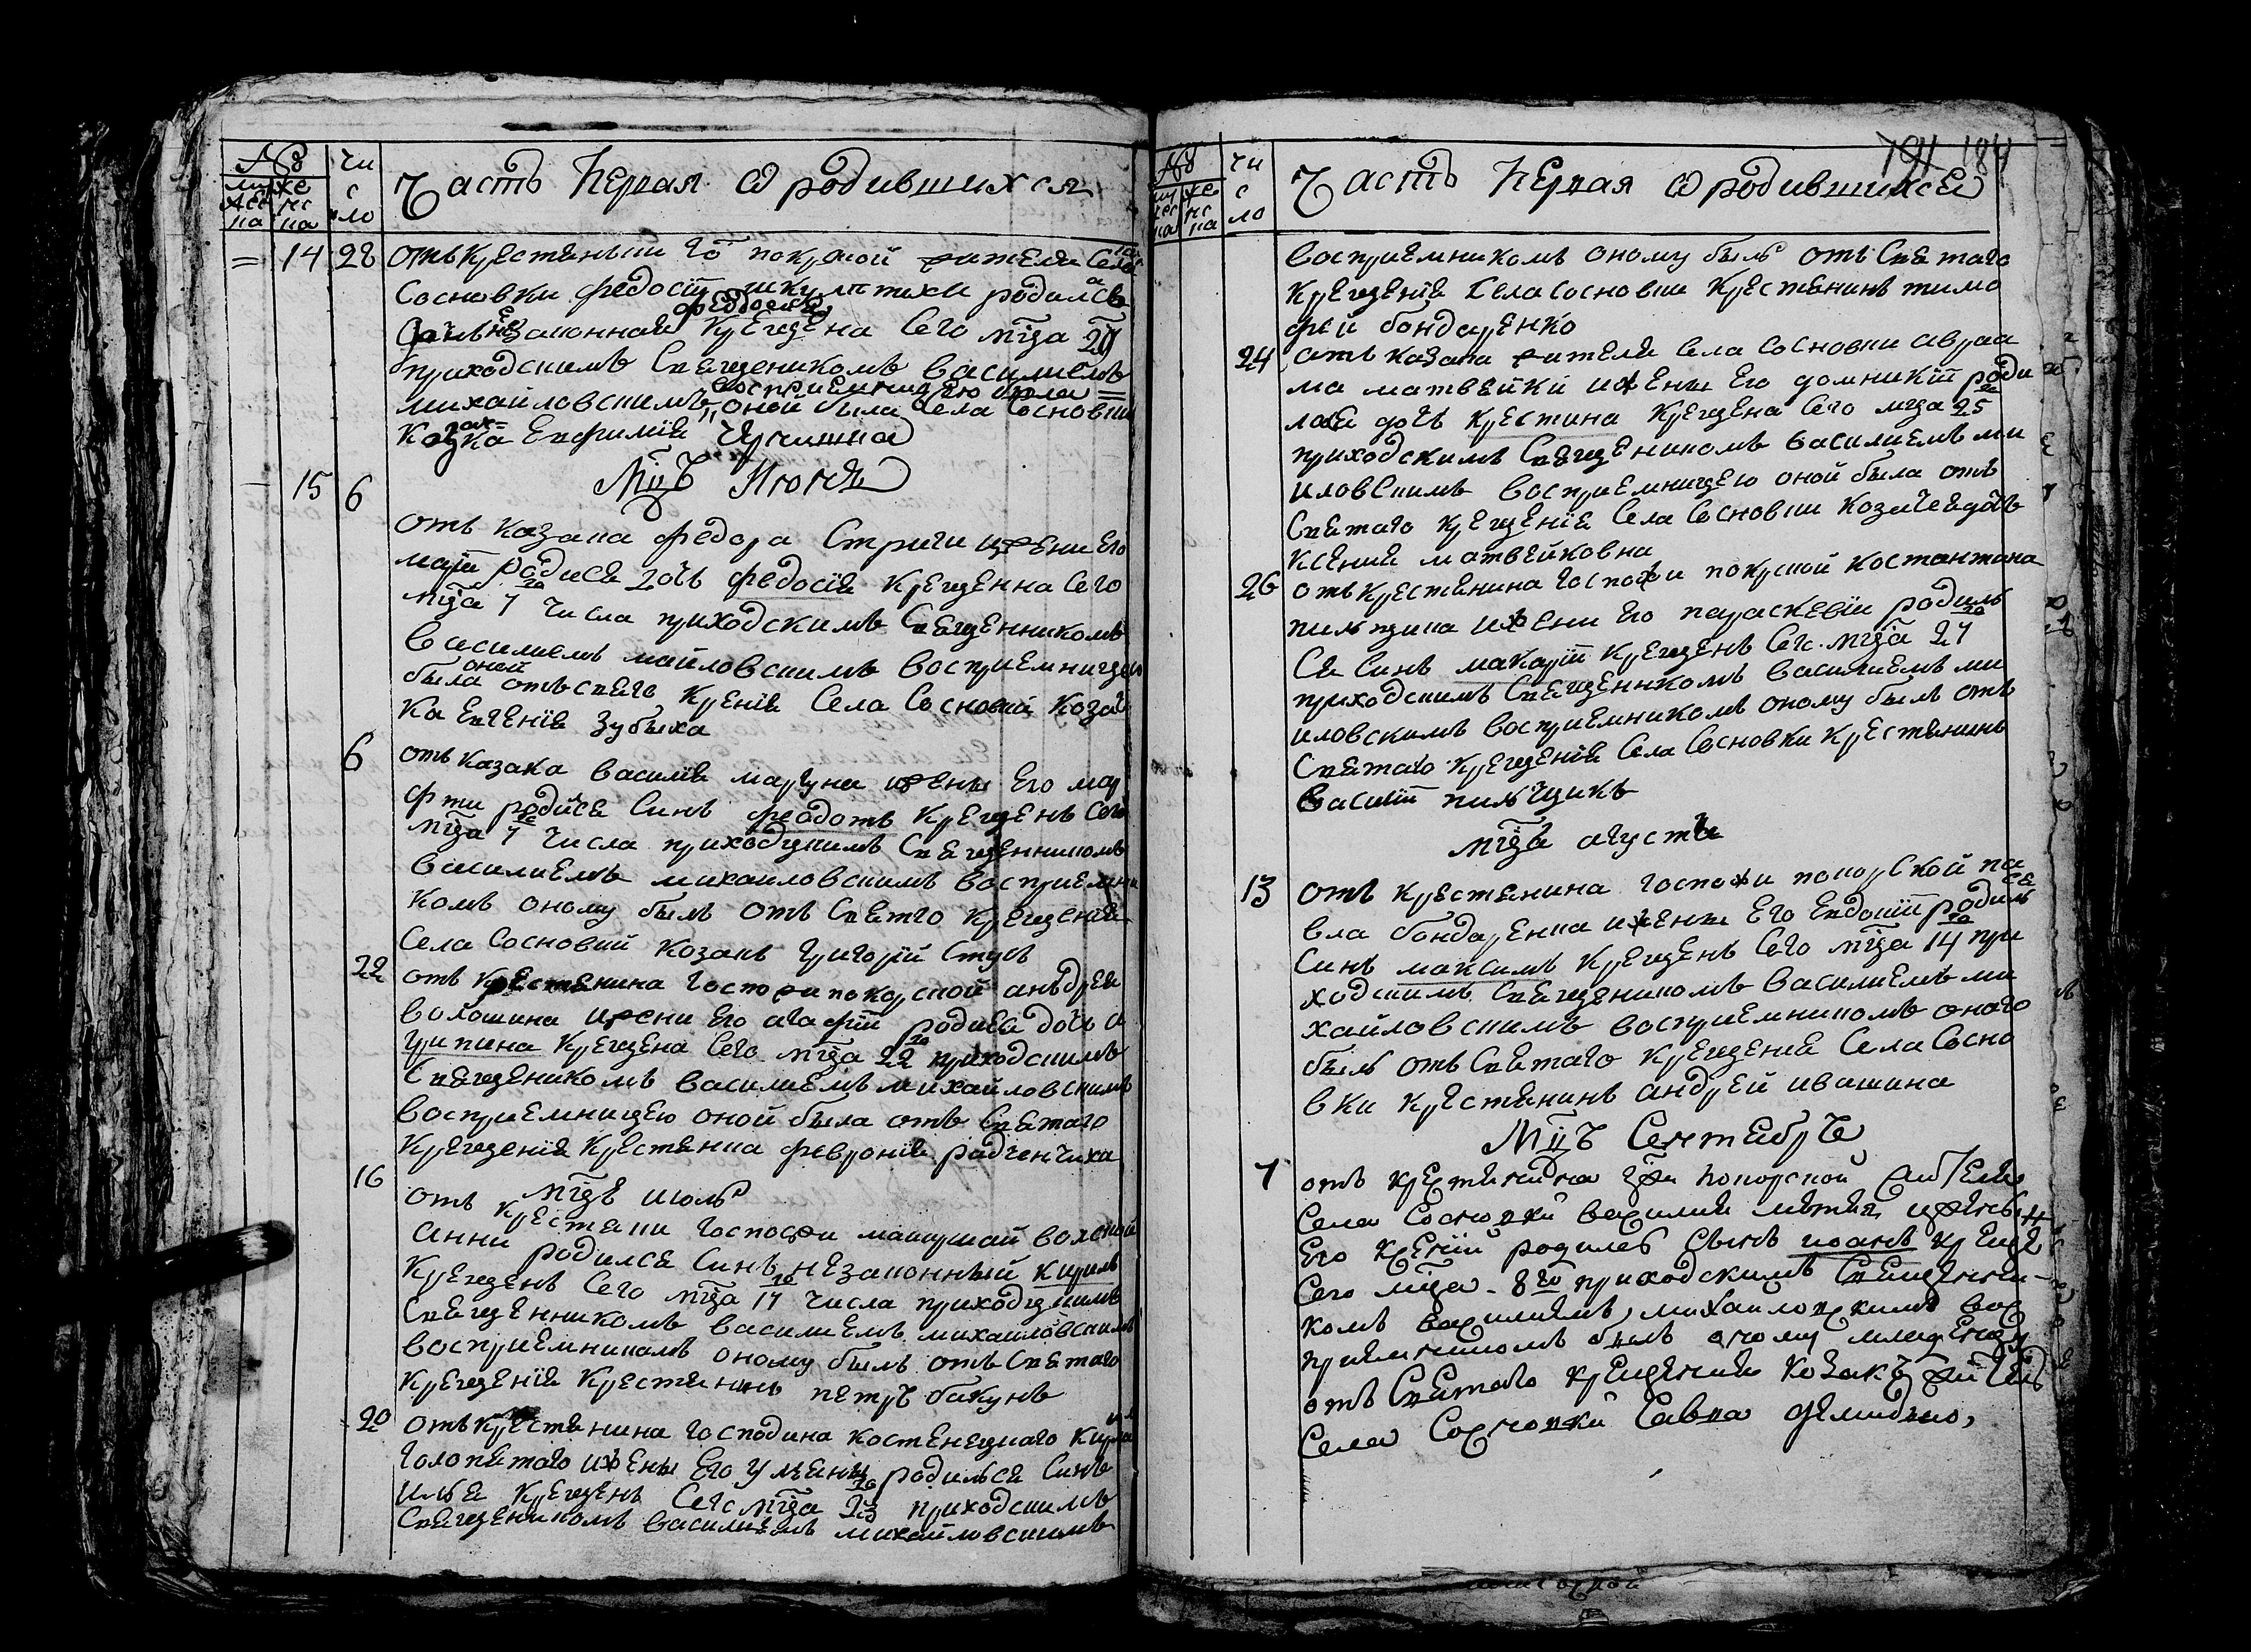 № чи
муже же с Часть Первая ѡ родившихся
14 28 отъ крестянъки гжи покорской жителки села
Сосновки федосіи родилась
дочь незаконная федосия крещена сего мца 29
приходскимъ Священикомъ василиемъ
михайловскимъ восприемницею
оной была села Сосновки
козачка Евфимия
Мцъ Июня
15 6 отъ казака федора Стриги и жени его
маріи родися дочь федосія крещенна сего
мца 7 числа приходскимъ Священникомъ
василиемъ майловскимъ восприемницею
была оной отъ свтаго крщения Села Сосновки козач
ка Евгенія зубыха
6 отъ казака василія марцуна и жены его мар
фи родися Синъ феодотъ крещенъ сего
мца 7 числа приходцкимъ Священникомъ
василиемъ михаиловскимъ восприемни
комъ оному былъ отъ Святго крещенія
Села Сосновкий козакъ григорій Стусь
22 отъ крестянина госпожи покорской анъдрея
волошина и жени его агафіи родися дочь а
грипина крещена сего мца 22 приходскимъ
Священикомъ василиемъ михайловскимъ
восприемницею оной была отъ Святаго
крещения крестянка февронія радченчиха
мцъ июль
16 отъ крестянки госпожи
анни родился Синъ незаконный кирилъ
крещенъ сего мца 17 числа приходцкимъ
Священникомъ василиемъ михаиловскимъ
восприемникомъ оному былъ отъ Святаго
крещенія крестянинъ петръ бакунъ
20 отъ крестянина господина костенецкаго кирила
голопятаго и жены его уляны родилься Синъ
илья крещенъ сего мца 23 приходскимъ
Священикомъ василиемъ михайловскимъ
191 184
№ чи
с Часть Первая ѡ родившихся
ло
восприемникомъ оному былъ отъ Святаго
крещенія села сосновки крестянинъ тимо
фей бондаренко
24 отъ казака жителя села Сосновки авраа
ма матвейки и жены его домникіи роди
лася дочъ крестина крещена сего мца 25
приходскимъ Священикомъ василиемъ ми
иловскимъ восприемницею оной была отъ
Святаго крещенія Села Сосновки козачея дочъ
ксения матвейковна
26 отъ крестянина госпожи покрской костантина
пилщика и жени его параскевіи родил
ся Синъ макаріи крещенъ сего мца 27
приходскимъ Священикомъ василиемъ ми
иловскимъ восприемникомъ оному былъ отъ
Святаго крещенія Села Сосновки крестянинъ
василіи пилъщикъ
мца августа
13 отъ крестянина госпожи покорской па
вла бондаренка и жены его Евдокіи родился
Синъ максимъ крещенъ сего мца 14 при
ходскимъ Священикомъ василиемъ ми
хайловскимъ восприемникомъ онаго
былъ отъ Святаго крещенія Села Сосно
вки крестянинъ андрей ивашина
Мцъ Сентябръ
7 отъ крестянина гжи покорской жителя
Села Сосновки василия и жены
его родился сынъ иоанъ креще
сего мца 8го приходскимъ Священни-
комъ василиемъ михаиловскимъ вос
приемникомъ былъ оному младенцу
отъ Святаго крещения козакъ
Села Сосновки Савва демидко